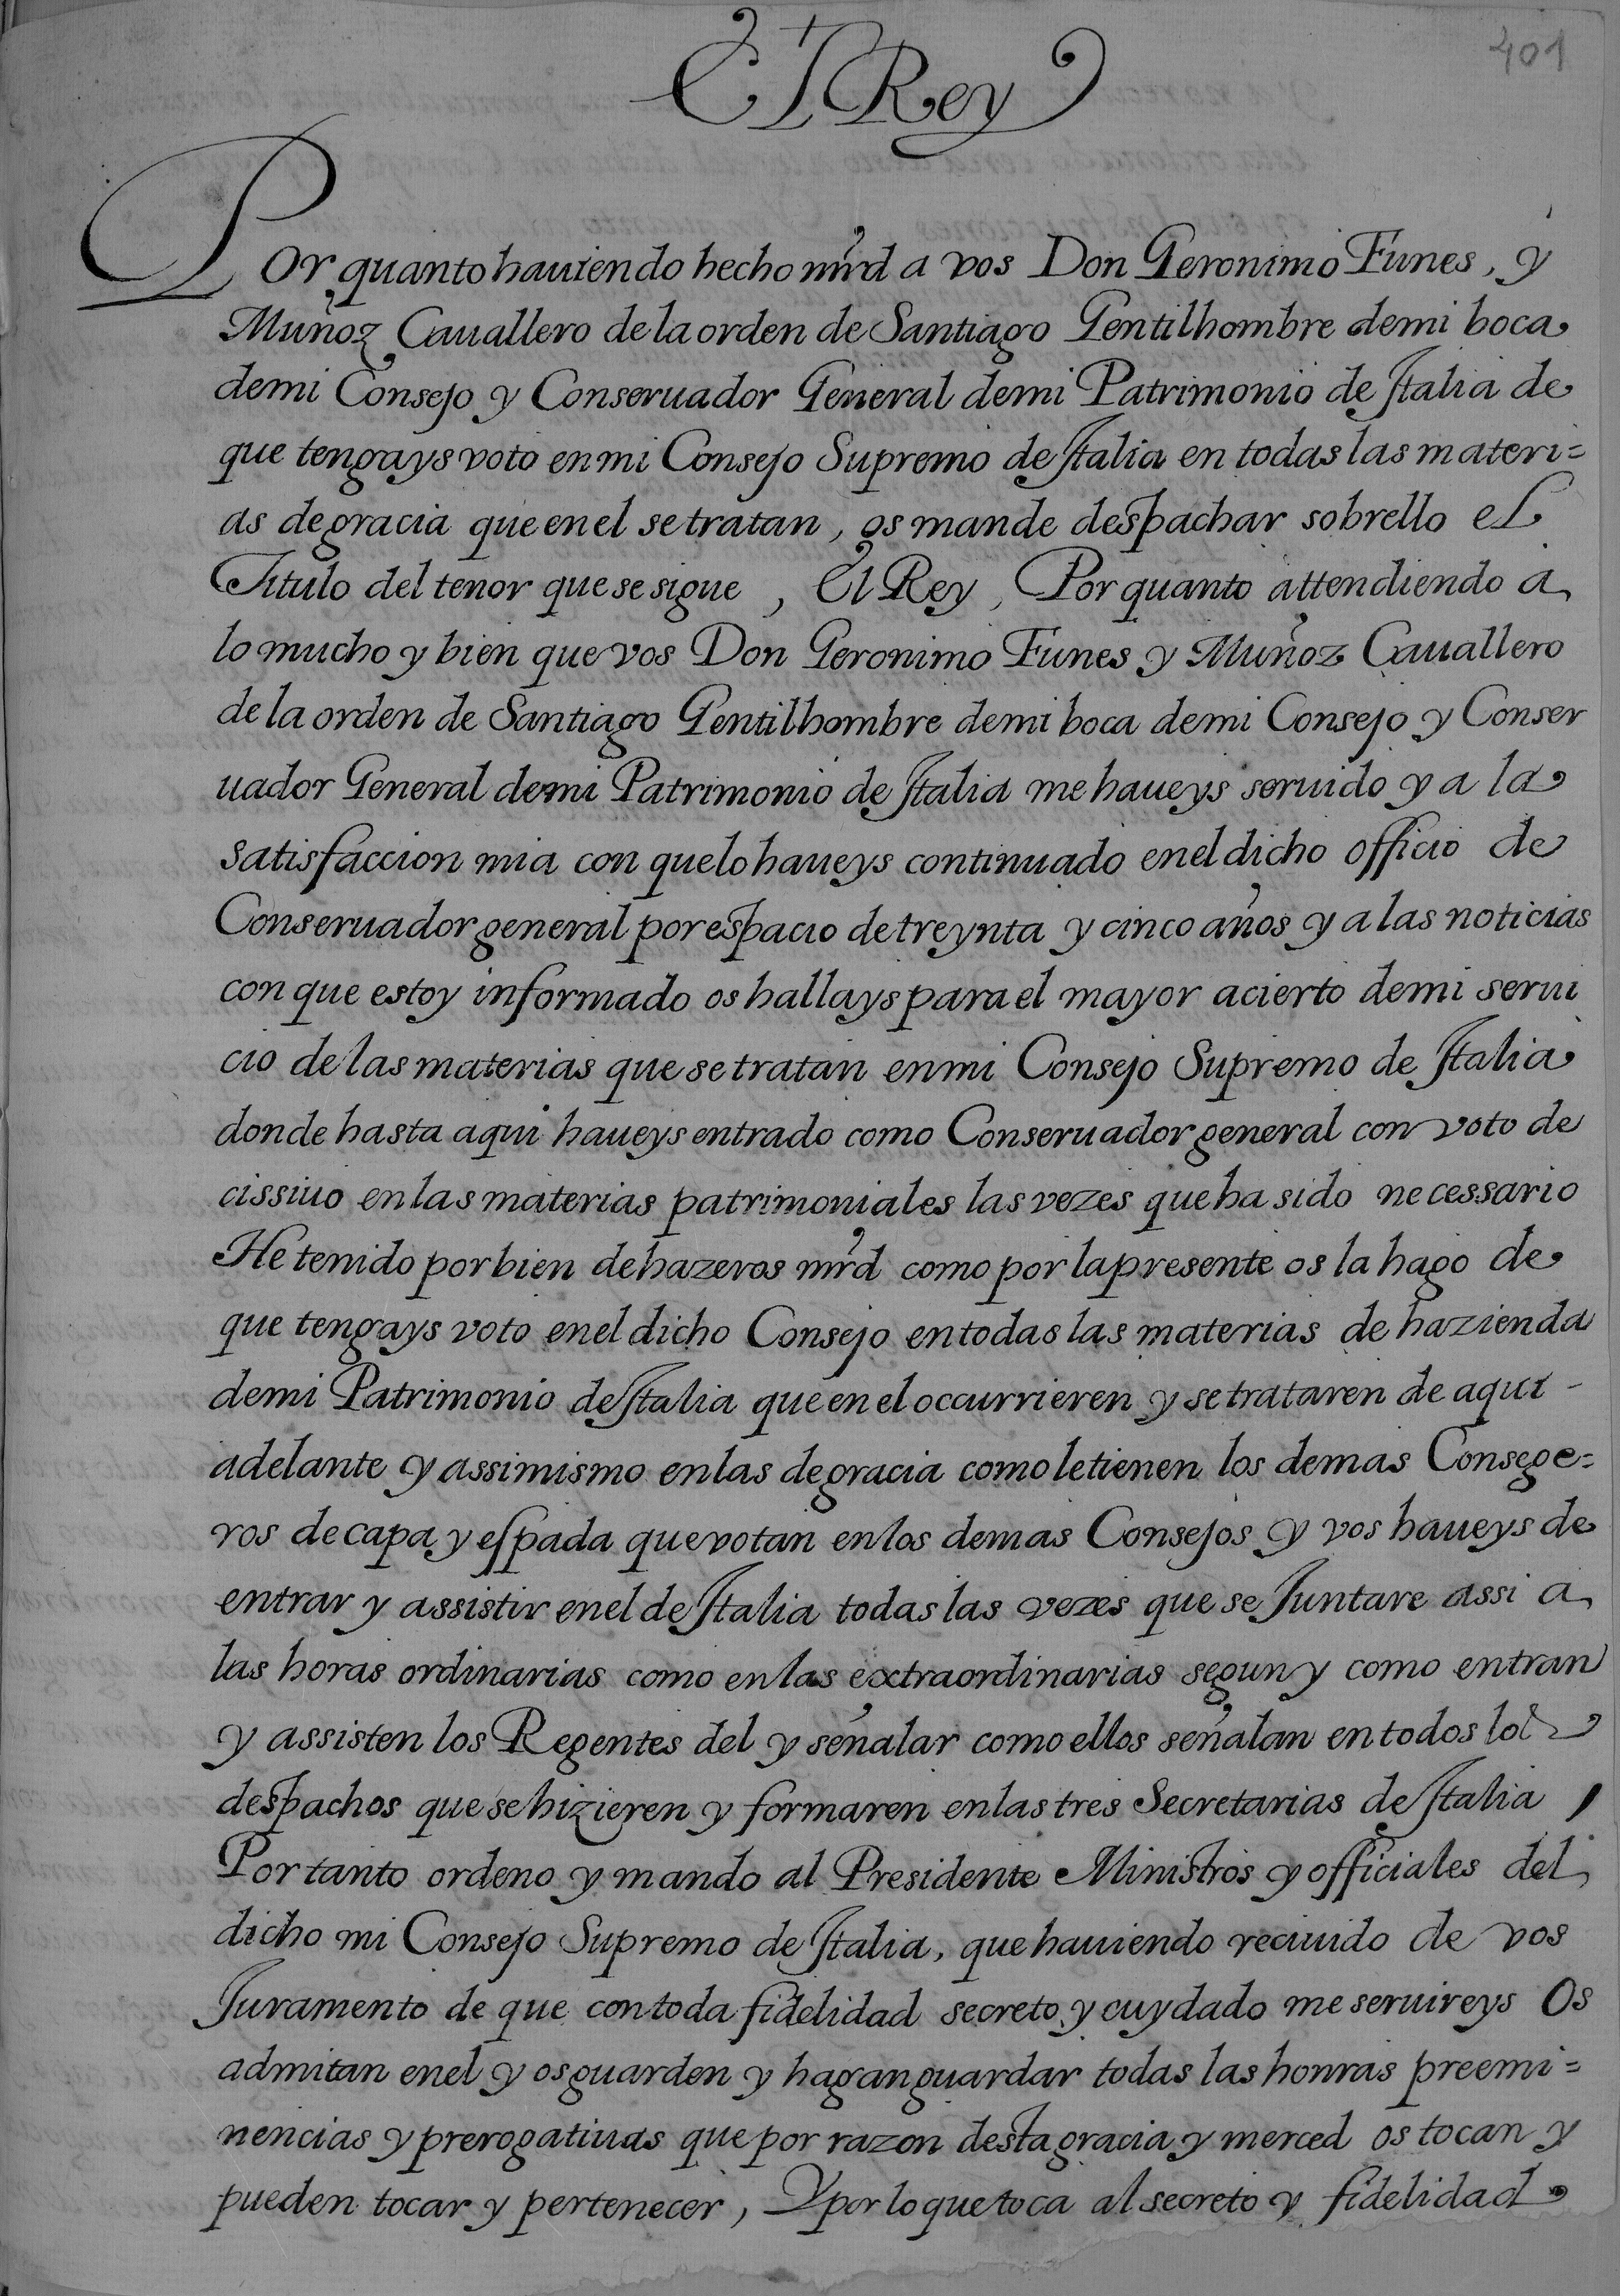 401
El Rey
Por quanto hauiendo hecho mrd a vos Don Geronimo Funes, y
Muñoz Cauallero de la orden de Santiago Gentilhombre de mi boca
de mi Consejo y Conseruador General de mi Patrimonio de Italia de
que tengays voto en mi Consejo Supremo de Italia en todas las materi=
as de gracia que en el se tratan, os mande despachar sobrello el
Titulo del tenor que se sigue, El Rey, Por quanto attendiendo a
lo mucho y bien que vos Don Geronimo Funes y Muñoz Cauallero
de la orden de Santiago Gentilhombre de mi boca de mi Consejo y Conser
uador General de mi Patrimonio de Italia me haueys seruido y a la
satisfaccion mia con que lo haueys continuado en el dicho officio de
Conseruador general por espacio de treynta y cinco años y a las noticias
con que estoy informado os hallays para el mayor acierto de mi serui
cio de las materias que se tratan en mi Consejo Supremo de Italia
donde hasta aqui haueys entrado como Conseruador general con voto de
cissiuo en las materias patrimoniales las vezes que ha sido necessario
He tenido por bien de hazeros mrd como por la presente os la hago de
que tengays voto en el dicho Consejo en todas las materias de hazienda
de mi Patrimonio de Italia que en el occurrieren y se trataren de aqui -
adelante y assimismo en las de gracia como le tienen los demas Consege=
ros de capa y espada que votan en los demas Consejos y vos haueys de
entrar y assistir en el de Italia todas las vezes que se Juntare assi a
las horas ordinarias como en las extraordinarias segun y como entran
y assisten los Regentes del y señalar como ellos señalan en todos los
despachos que se hizieren y formaren en las tres Secretarias de Italia,
Por tanto ordeno y mando al Presidente Ministros y officiales del
dicho mi Consejo Supremo de Italia, que hauiendo reciuido de vos
Juramento de que con toda fidelidad secreto y cuydado me seruireys Os
admitan en el y os guarden y hagan guardar todas las honras preemi=
nencias y prerogatiuas que por razon desta gracia y merced os tocan y
pueden tocar y pertenecer, Y por lo que toca al secreto y fidelidad